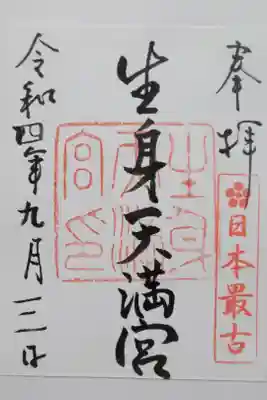 奉拝
日本最古
生身天満宮
令和四年九月二日